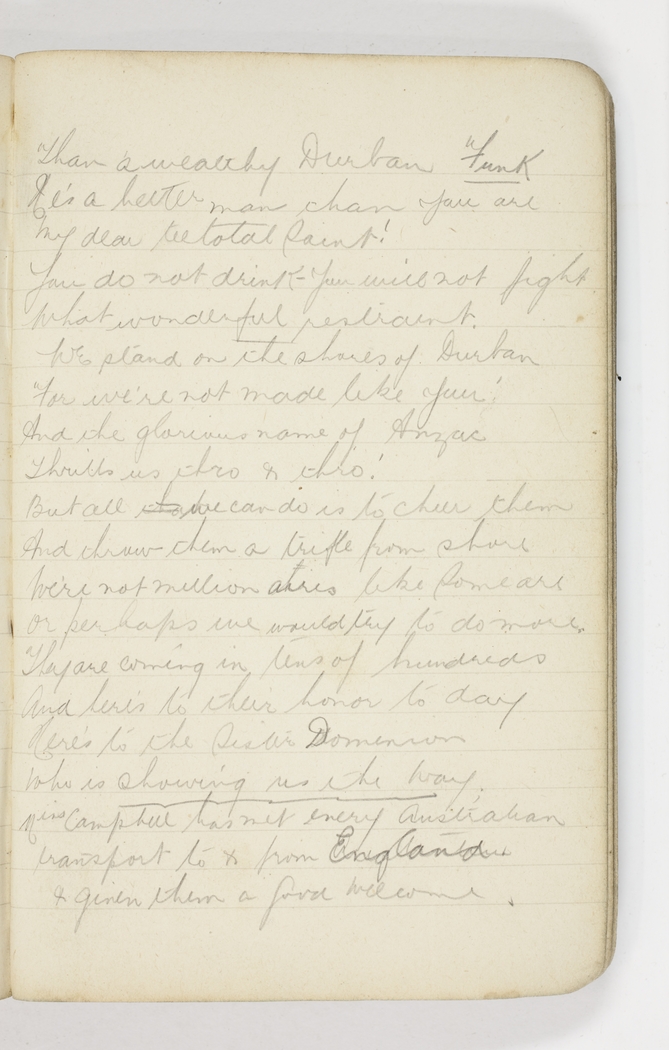 Than a wealthy Durban "Funk
He's a better man than you are
My dear teetotal Saint!
You do not drink - You will not fight
What wonderful restraint.
We stand on the shores of Durban
For we're not made like you!
And the glorious name of Anzac
Thrills us thro & thro!
But all we can do is to cheer them
And throw them a trifle from shore
We're not millionaires like Some are
Or perhaps we would try to do more.
They are coming in tens of hundreds
And here's to their honor to day
Here's to the Sister Dominion
Who is showing us the Way.
Miss Campbell has met every Australian
transport to & from England
& given them a Good Welcome.